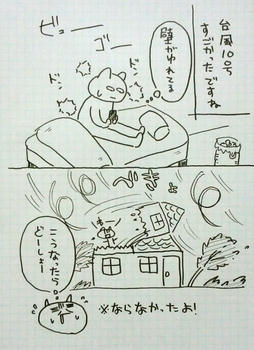 台風10号
すごかったですね
ビュー
ゴー
ドン
ドン
壁がゆれてる
こうなったら
どーしよー
※ならなかったよ!